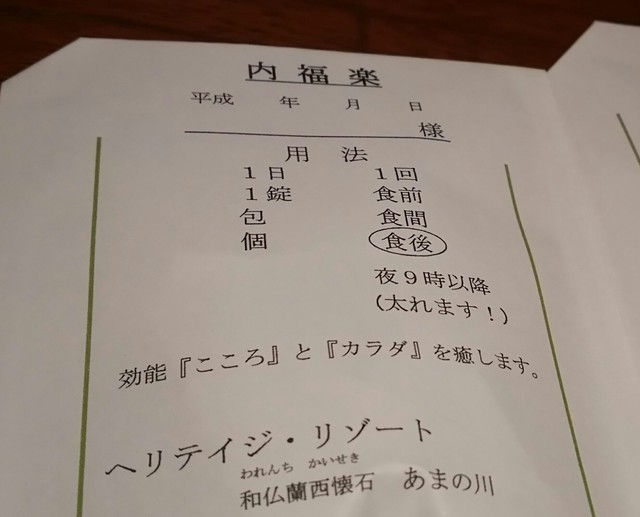 内福楽
平成 年 月 日
様
用 法
1日 1回
1錠 食前
包 食間
個 食後
夜9時以降
(太れます!)
効能『こころ』と『カラダ』を癒します。
ヘリテイジ・リゾート
われんち かいせき
和仏蘭西懐石 あまの川